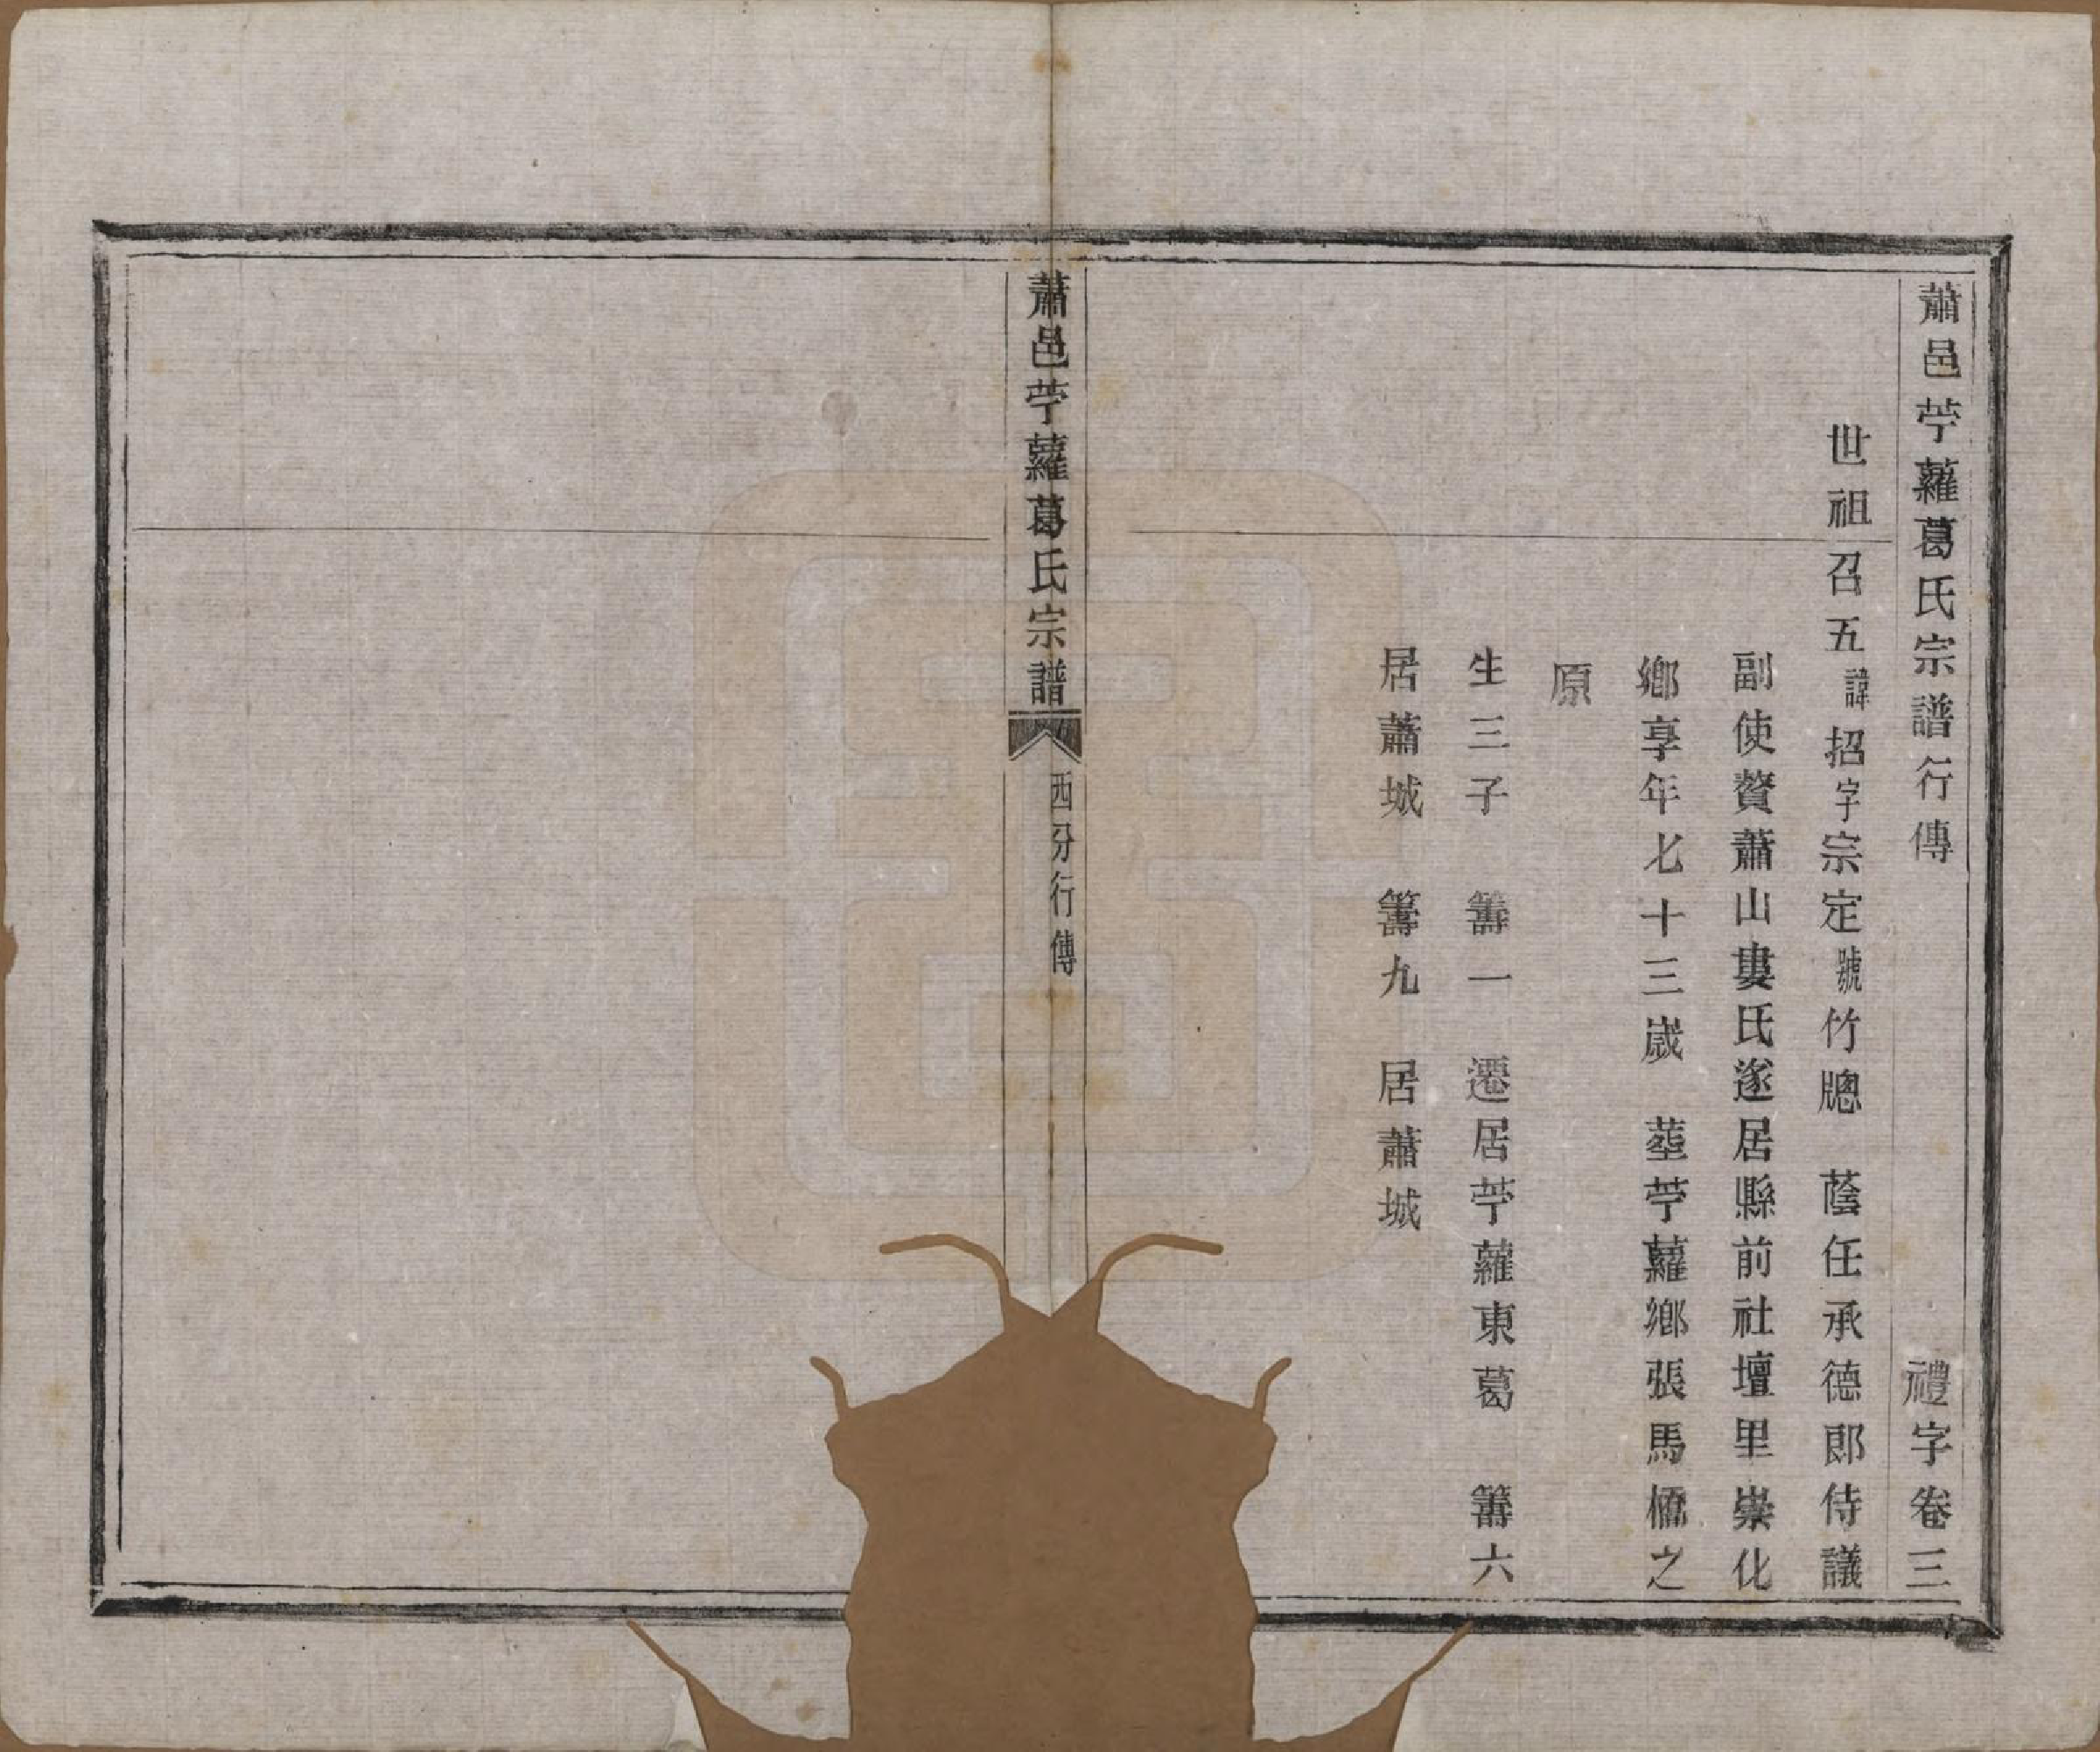 蕭邑苧蘿葛氏宗譜行傳　禮字卷三
世祖召五諱招字宗定號竹牕　蔭任承德郎侍議
副使贅蕭山婁氏遂居縣前社壇里崇化
鄉享年七十三歲　塟苧蘿鄉張馬橋之
原
生三子　籌一　遷居苧蘿東葛　籌六
居蕭城　籌九　居蕭城
蕭邑苧蘿葛氏宗譜
西分行傳